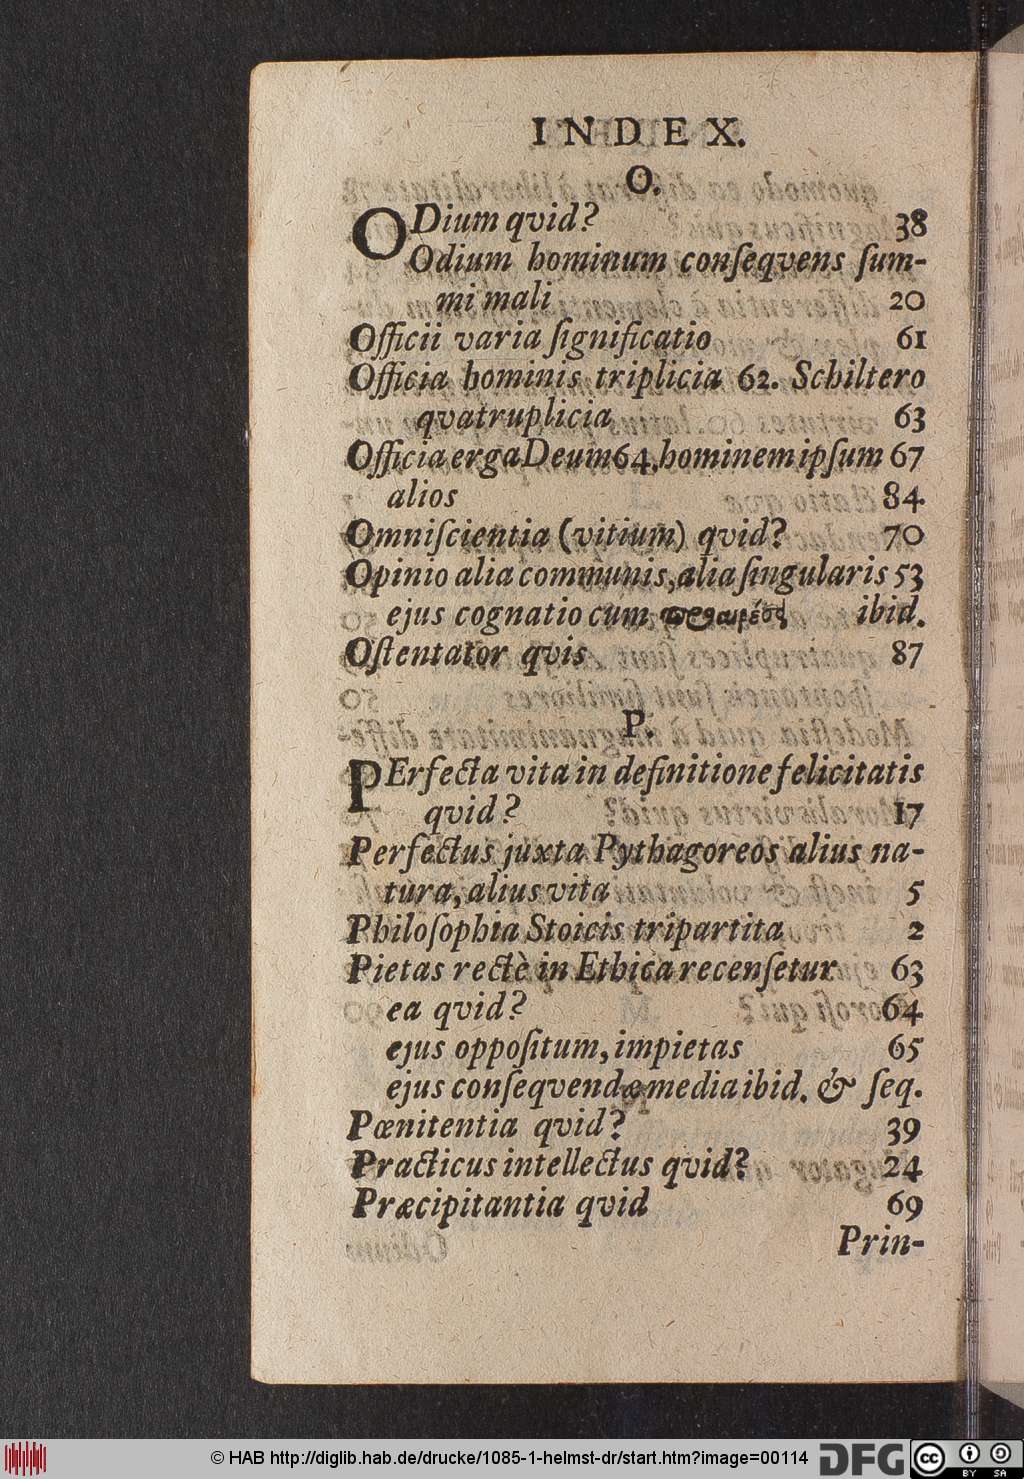 INDEX.
O.
ODium qvid? 38
Odium hominum conſeqvens ſum-
mi mali 20
Officii varia ſignificatio 61
Officia hominis triplicia 62. Schiltero
qvatruplicia 63
Officia erga Deum 64, hominem ipſum 67
alios 84
Omniſcientia (vitium) qvid? 70
Opinio alia communis, alia ſingularis 53
ejus cognatio cum ibid.
Oſtentator qvis 87
P.
PErfecta vita in definitione felicitatis
qvid? 17
Perfectus juxta Pythagoreos alius na-
tura, alius vita 5
Philoſophia Stoicis tripartita 2
Pietas rectè in Ethica recenſetur 63
ea qvid? 64
ejus oppoſitum, impietas 65
ejus conſeqvendæ media ibid. & ſeq.
Pœnitentia qvid? 39
Practicus intellectus qvid? 24
Præcipitantia qvid 69
Prin-
© HAB http://diglib.hab.de/drucke/1085-1-helmst-dr/start.htm?image=00114
DFG
cc BY SA